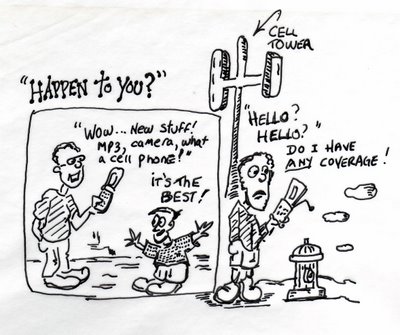 "HAPPEN TO YOU?"
CELL
TOWER
"WOW... NEW STUFF!
MP3, CAMERA, WHAT
A CELL PHONE!"
IT'S THE
BEST!
"HELLO?
HELLO?"
DO I HAVE
ANY COVERAGE!